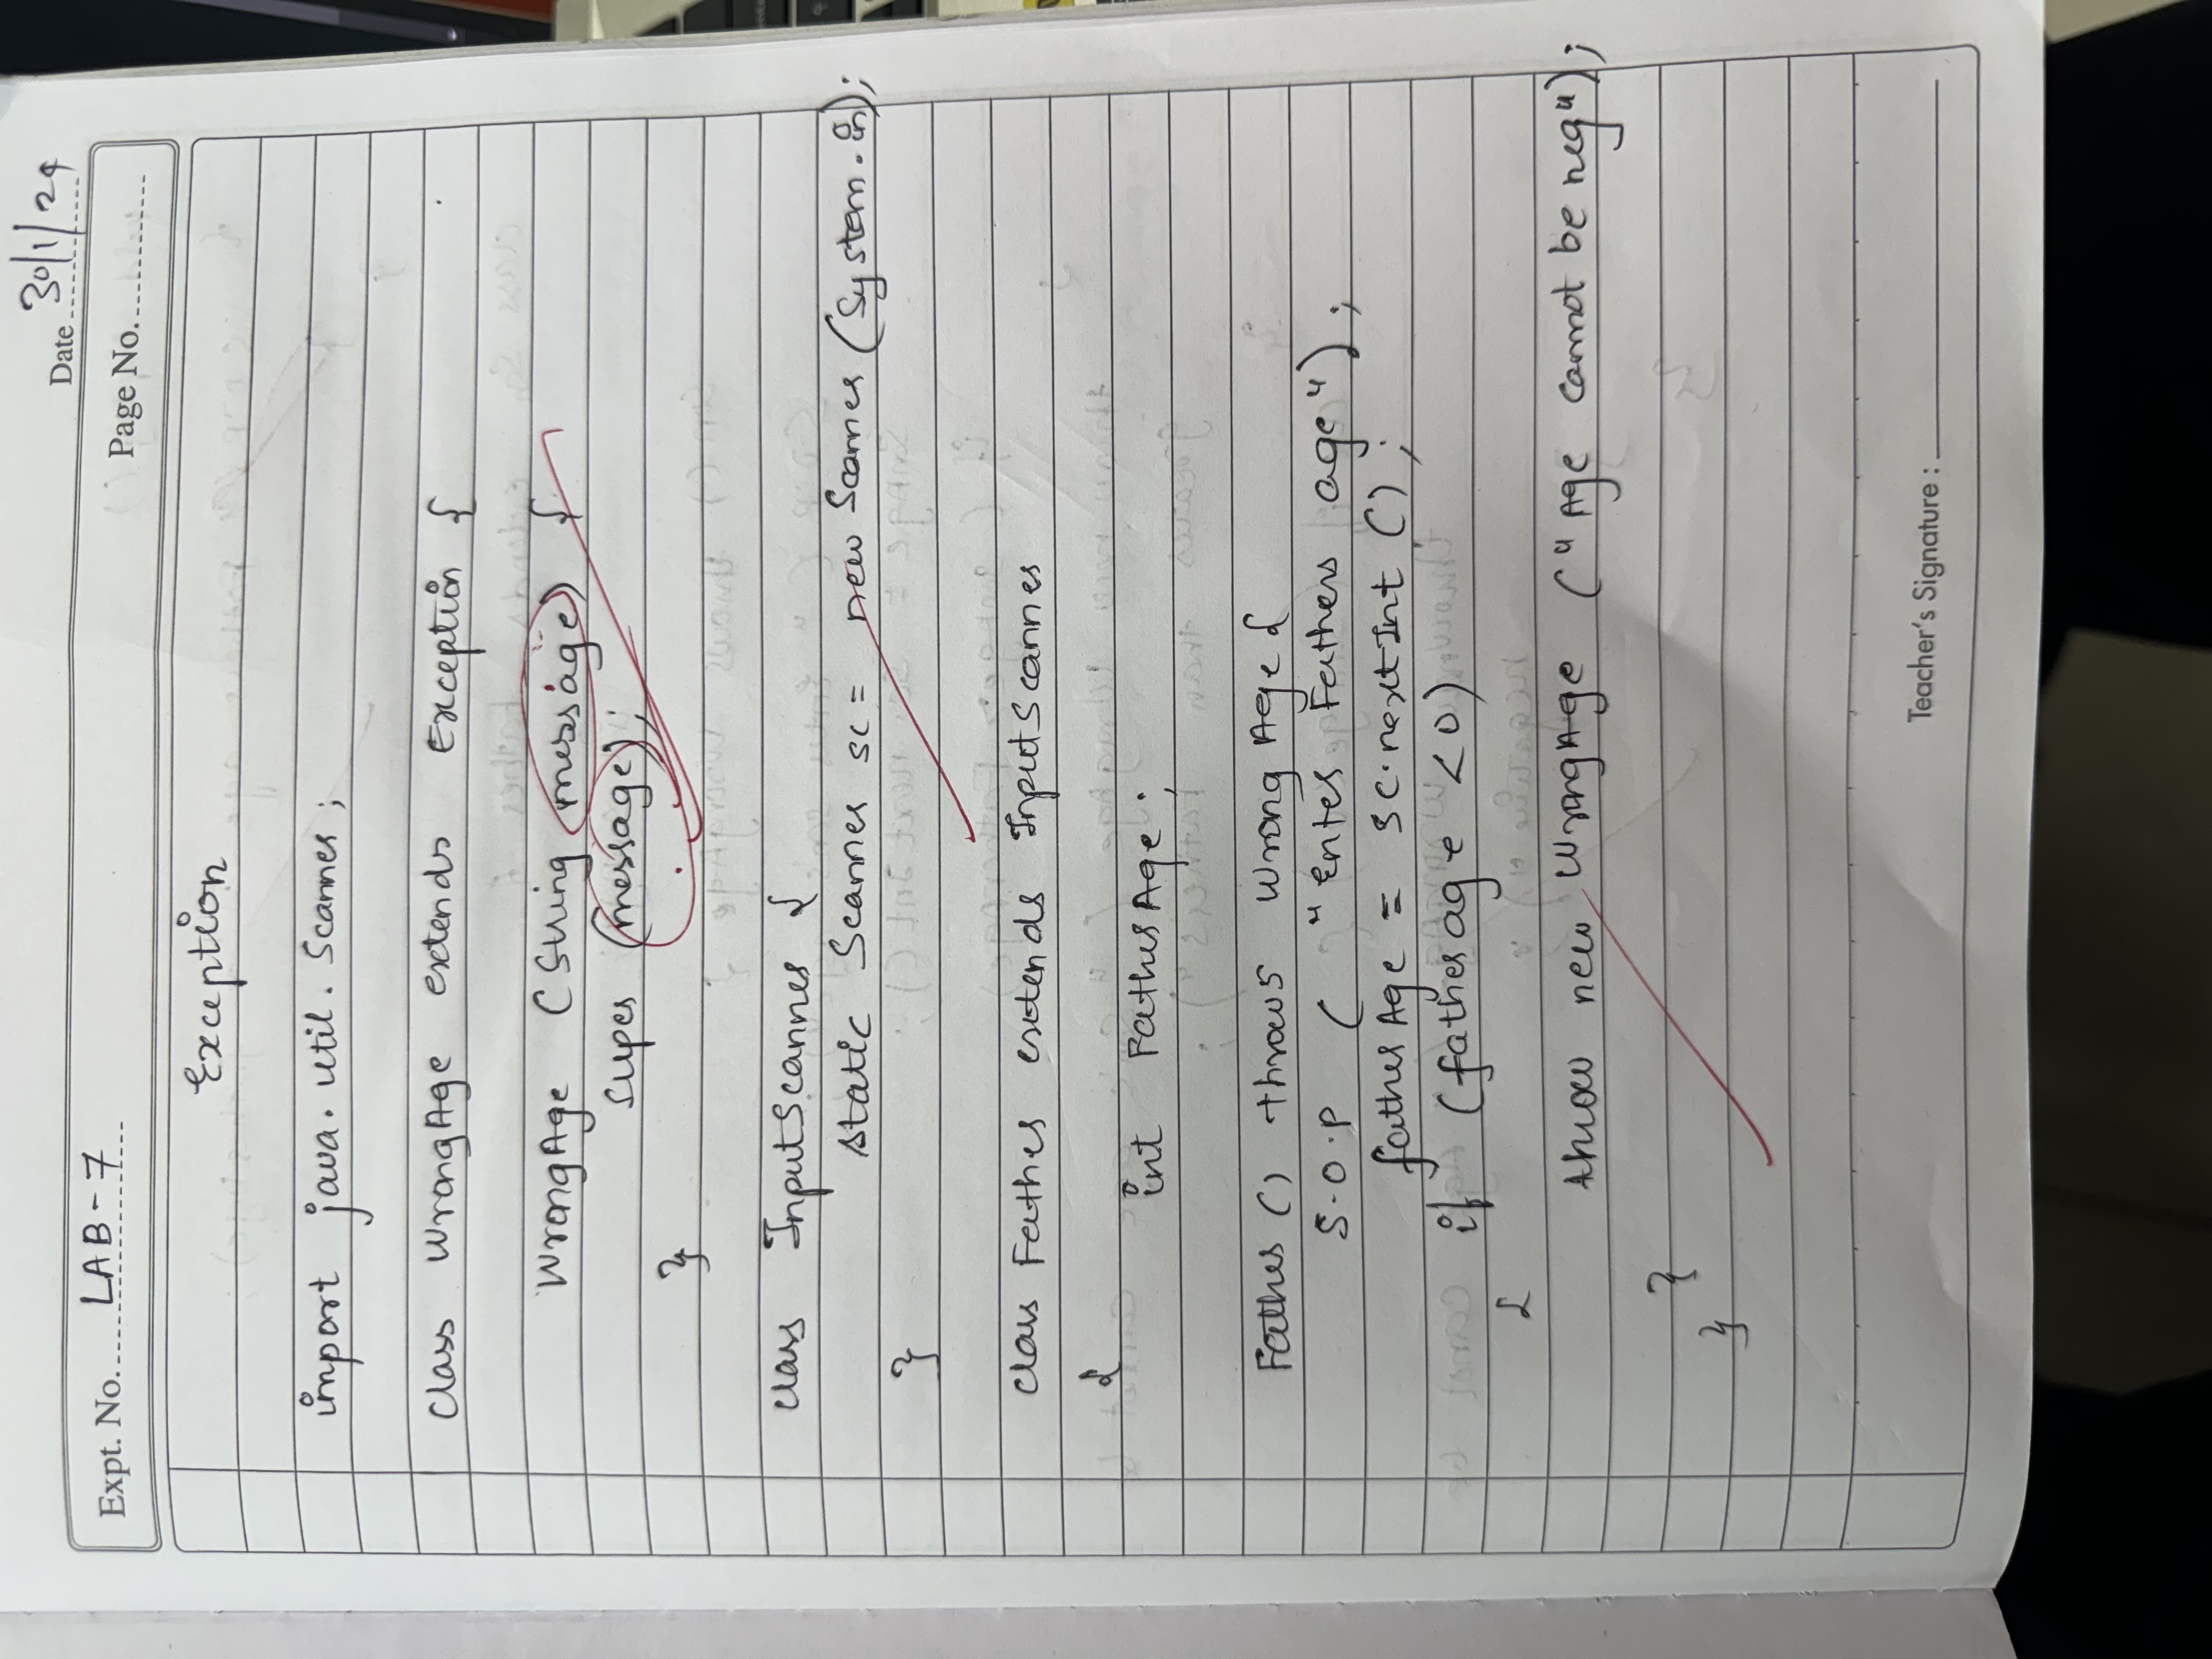 Date 30/1/24
Expt. No. LAB-7
Page No.
Exception
import java.util.Scanner;
class WrongAge extends Exception {
WrongAge (String message) {
super (message);
}
class InputScanner {
static Scanner sc = new Scanner (System.in);
}
class Father extends InputScanner
{
int FatherAge;
Father () throws WrongAge {
S.O.P ("Enter Fathers age");
fatherAge = sc.nextInt ();
if (fatherage <0)
{
throw new WrongAge ("Age cannot be neg");
}
}
Teacher's Signature :